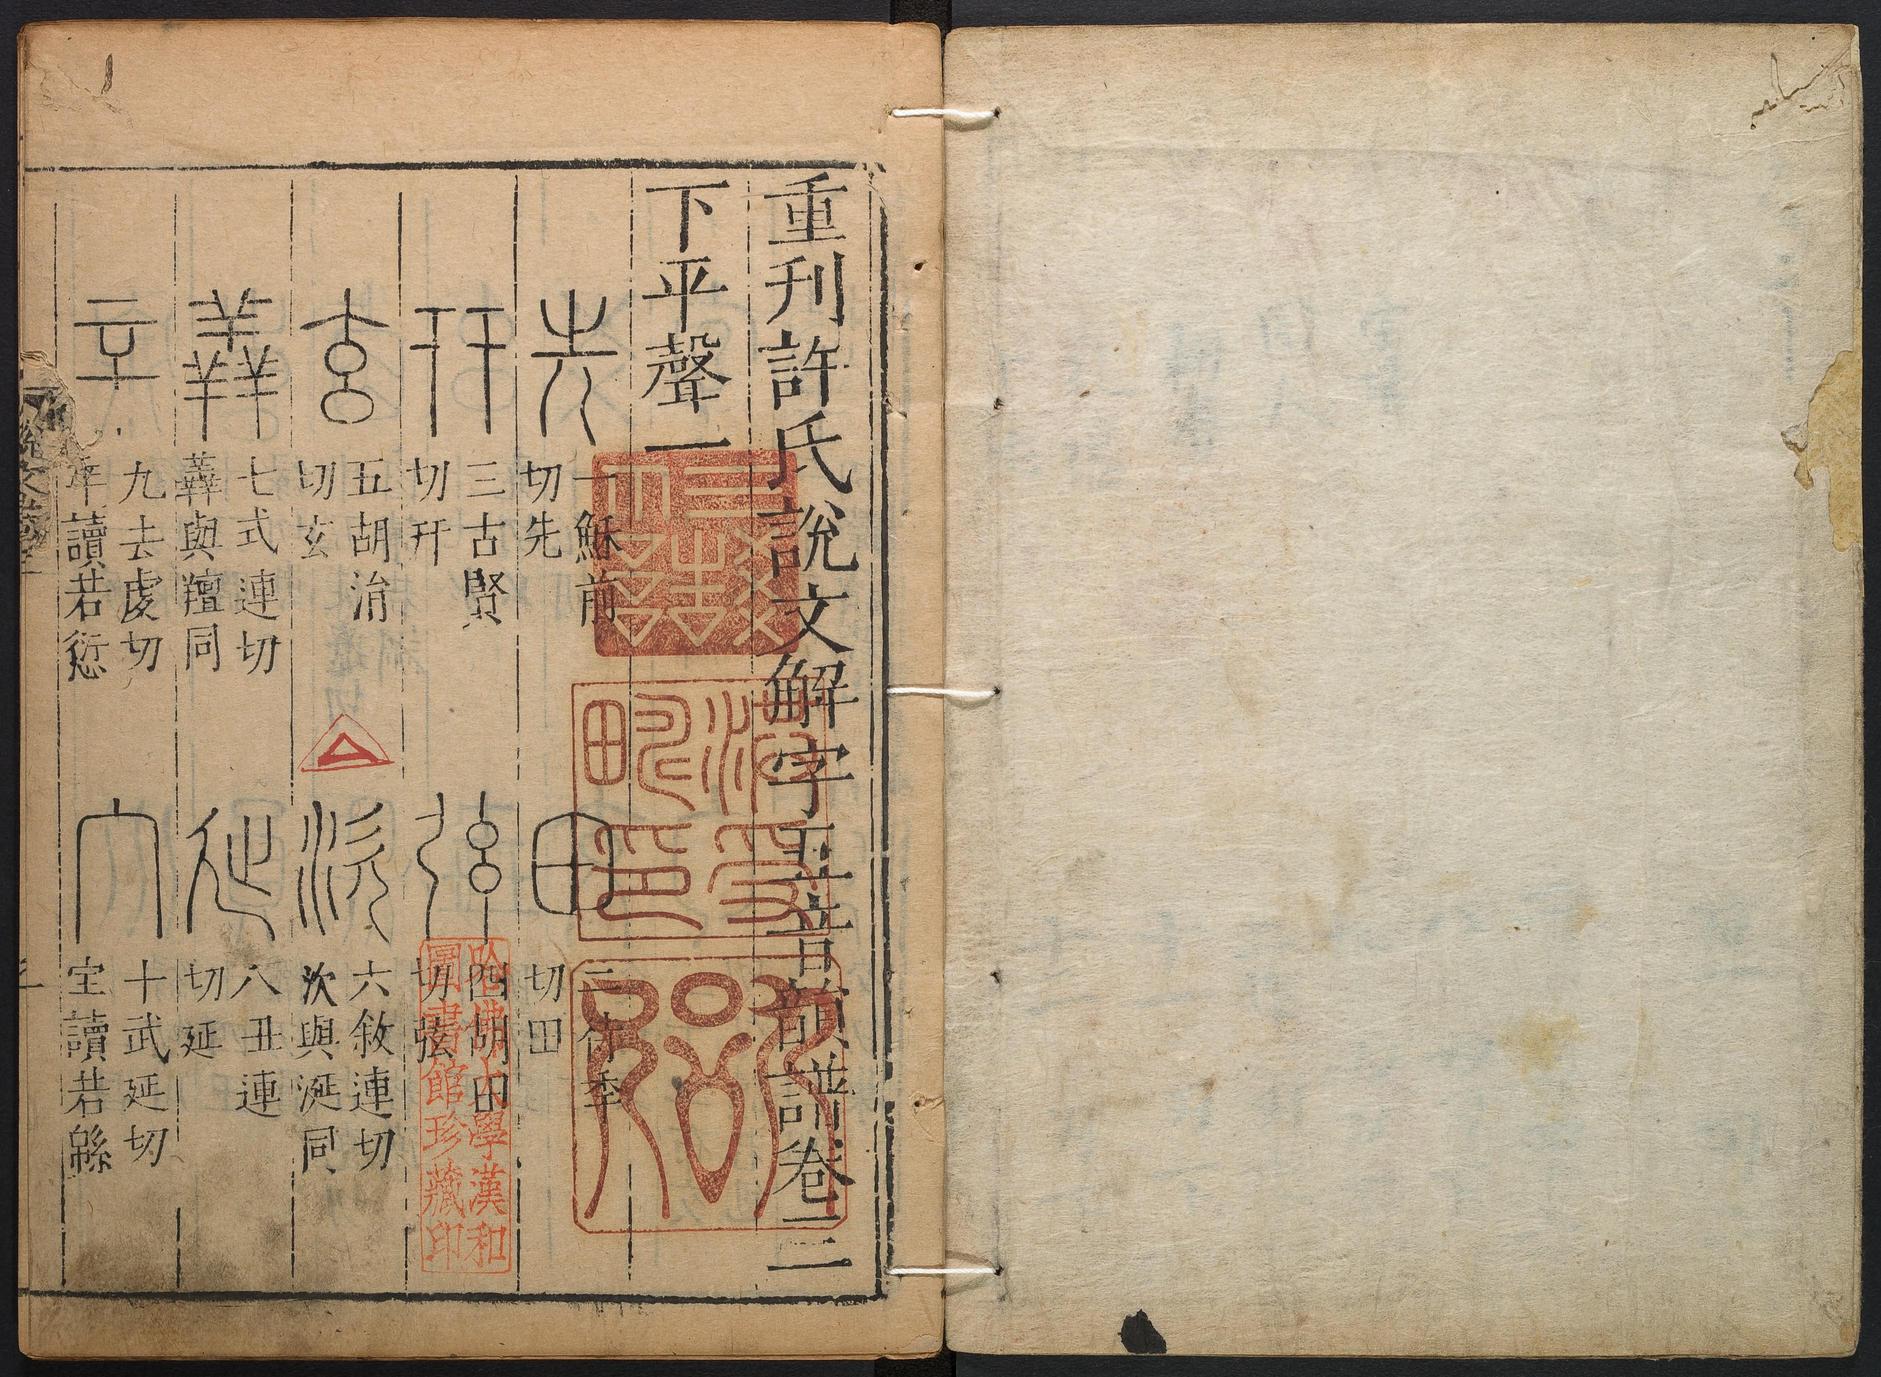 重刊許氏說文解字五音韻譜卷三
下平聲一
先 一穌前切先
田 二待季切田
幵 三古賢切幵
弦 四胡田切弦
玄 五胡涓切玄
㳄 六敘連切㳄與涎同
羴 七式連切羴與羶同
延 八丑連切延
䇂 九去虔切䇂讀若愆
宀 十武延切宀讀若緜
哈佛大學漢和
圖書館珍藏印